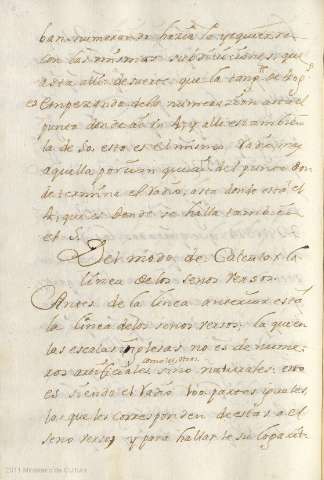 ban numerando hacia la yzquierda
con las mismas subdiviciones, que
asta alli: de suerte, que la tang.te de 40 g.s
Empezando dela numeracion asta el
punto donde ai la 4, y alli esta tambien
la de 50, esto es el mismo Vadio
aquella porcion que ai del punto don
de termina el Vadio, asta donde esta el
4, que es donde se halla tambien
el 5.
Del modo de Calcular la
linea delos senos versos.
Antes de la linea anterior está
la linea delos senos versos, la que en
las escalas Inglesas no es de nume
como las otras
ros artificiales sino naturales: esto
es siendo el Vadio 100 partes yguales
las que les corresponden de estas a el
seno verso, y para hallarle su
2011 Ministerio de Cultura